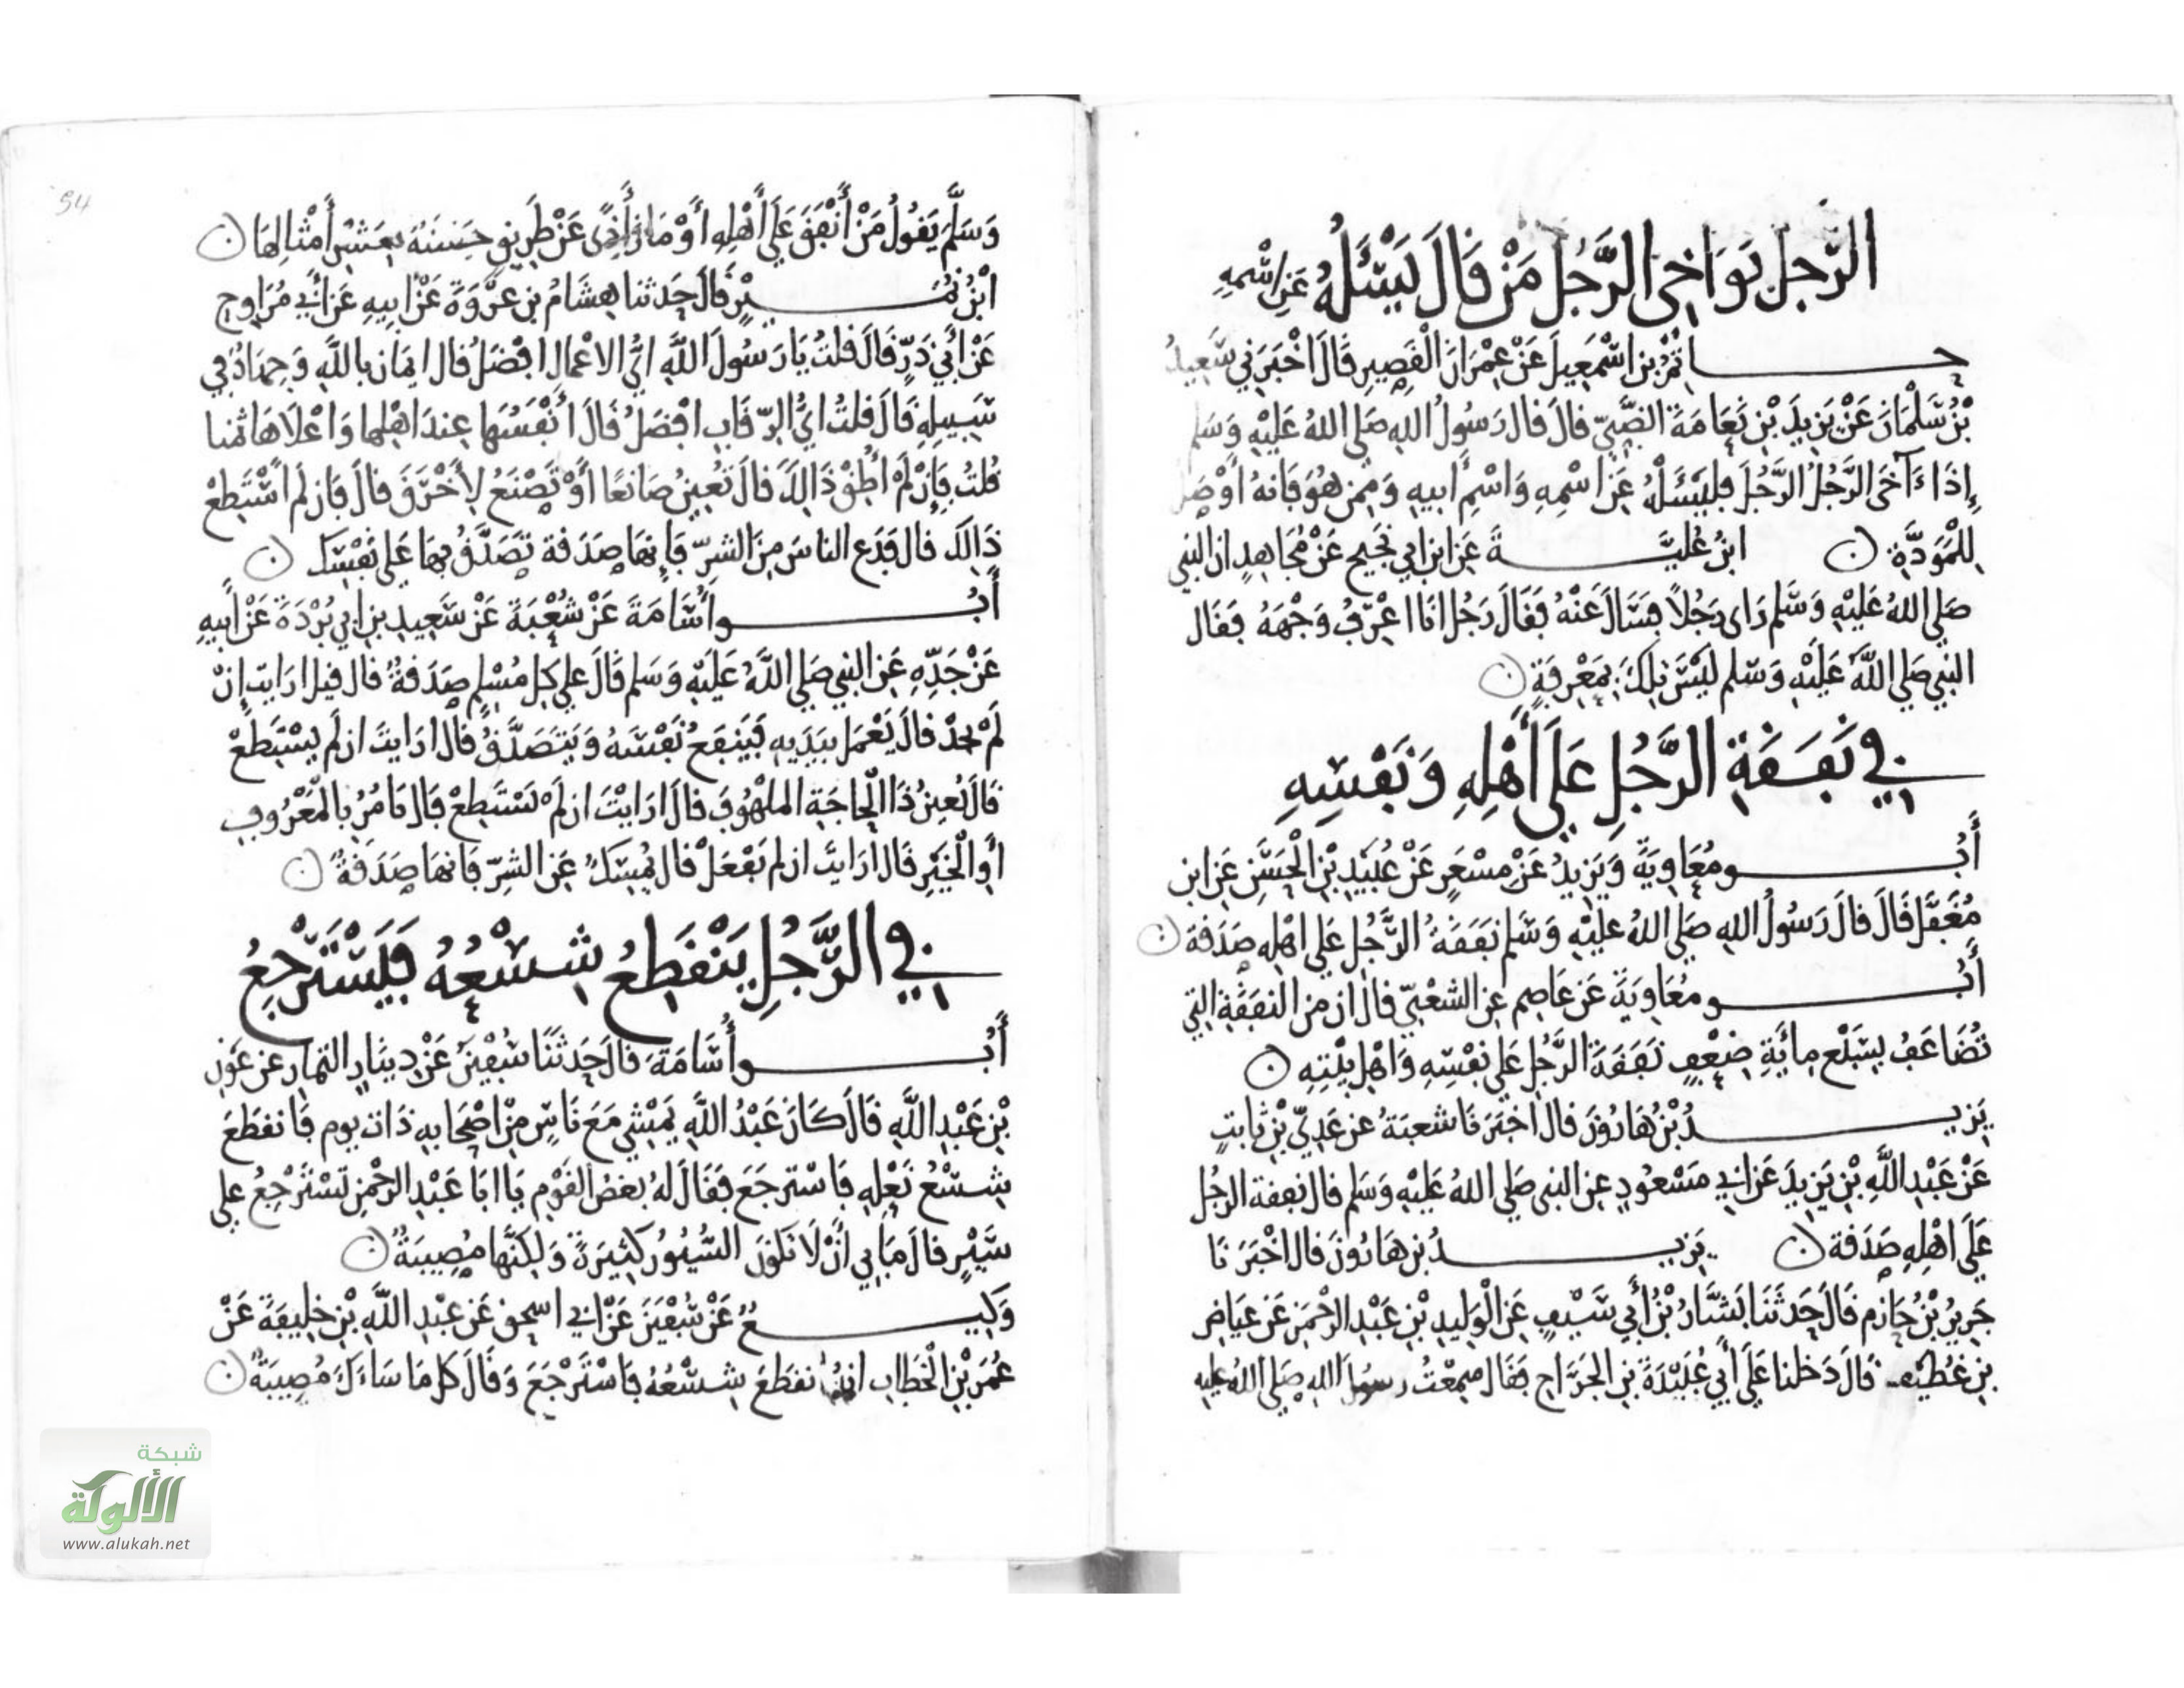 الرَّجل يواخي الرَّجُل مَنْ قَالَ يَسْئَلُهُ عَنِ اسْمِهِ
حاتم بن اسْمَعِيلَ عَنْ عِمْرَانَ الْقَصِيرِ قَالَ اخْبَرَنِي سَعِيدُ
بْنُ سَلْمَانَ عَنْ يَزِيدَ بْنِ نَعَامَةَ الضَّبِّيِّ قالَ قال رَسُولُ اللهِ صَلى اللهُ عَلَيْهِ وَسَلم
إِذَا ءَآخَى الرَّجُلُ الرَّجُلَ فليَسْئَلْهُ عَنِ اسْمِهِ وَاسْمِ أَبيهِ وَمِمن هُوَ فَانهُ أَوْصَل
لِلْمَوَدَّةِ ن ابنُ عُلَيَّةَ عَنِ ابن ابي نَجِيح عَنْ مُجَاهِدٍ ان النبي
صَلى اللهُ عَلَيْهِ وَسَلم رَاى رَجُلاً فسَأَلَ عَنْهُ فَقَالَ رَجُل انَا اعْرِفُ وَجْهَهُ فَقَال
النبي صَلى اللَّهُ عَلَيْهِ وَسَلم ليْسَ تِلكَ بِمَعْرِفَةٍ ن
في نَفَقَةِ الرَّجُلِ عَلَى أَهْلِهِ وَنَفْسِهِ
أَبُو مُعَاوِيَةَ وَيَزِيدُ عَنْ مِسْعَرٍ عَنْ عُبَيْدِ بْنِ الْحَسَنِ عَنِ ابن
مُغَفَّل قَالَ قالَ رَسُولُ اللهِ صَلى اللهُ عليْهِ وَسَلم نَفَقَةُ الرَّجُلِ عَلى اهْلِهِ صَدَقة ن
أَبُو مُعَاوِيَةَ عَن عَاصِم عَنِ الشعْبِيّ قال ان من النفَقَةِ التِي
تُضَاعَفُ بِسَبْعِ مِائَةِ ضِعْفٍ نَفَقَةَ الرَّجُلِ عَلى نفْسِهِ وَاهْلِ بيْتِهِ ن
يَزِيدُ بْنُ هَارُونَ قال اخْبَرَنَا شعبَةُ عن عَدِيّ بْنِ ثابتٍ
عَنْ عَبْدِ اللَّهِ بْنِ يَزِيدَ عَن ابي مَسْعُودٍ عن النبي صَلى اللهُ عَلَيْهِ وَسَلم قال نفقة الرجُل
عَلَى اهْلِهِ صَدَقة ن يَزِيدُ بن هَارُونَ قال اخْبَرَنَا
جَرِيرُ بْنُ حَازِم قَالَ حَدثَنَا بَشَّارُ بْنُ أَبي سَيْفٍ عَنِ الْوَلِيدِ بْنِ عَبْدِ الرحْمَنِ عَن عِيَاضِ
بن غُطيْف قَالَ دَخلنا عَلَى أَبي عُبَيْدَةَ بنِ الجَرَّاحِ فَقَال سَمِعْتُ رسول اللهِ صَلى اللهُ عليهِ
54
وَسَلَّمَ يَقُولُ مَنْ أَنْفَقَ عَلَى أَهْلِهِ أَوْ مَازَ أَذًى عَنْ طَرِيقٍ حَسَنَة بِعَشْرِ أَمْثَالِهَا ن
ابْنُ نُمَيْرٍ قَالَ حَدثنا هِشَامُ بن عرْوَةَ عَنْ ابِيهِ عَن أَبي مُرَاوِحٍ
عَنْ أَبي ذَرٍّ قَالَ قلتُ يَا رَسُولَ اللَّهِ ايُّ الاعْمَال افْضَلُ قال ايمَان باللَّهِ وَجِهَادٌ في
سَبِيلِهِ قَالَ قلتُ ايُّ الرّقَابِ افْضَلُ قَالَ أَنْفَسُهَا عِندَ اهْلِهَا وَاعْلَاهَا ثمنا
قُلتُ فإِنْ لَمْ أُطِقْ ذَالِكَ قال تُعِينُ صَانعًا أَوْ تَصْنَعُ لِأَخْرَقَ قالَ فَان لم اسْتَطِعْ
ذَالِكَ قال فَدَعِ الناسَ مِنَ الشرّ فَإِنهَا صَدَقة تَصَدَّقُ بِهَا عَلى نَفْسِكَ ن
أَبُو أُسَامَةَ عَنْ شُعْبَةَ عَنْ سَعِيدِ بنِ ابي بُرْدَةَ عَنْ أَبيهِ
عَنْ جَدِّهِ عَنِ النبي صَلى اللَّهُ عَلَيْهِ وَسَلم قَالَ على كل مُسْلِمٍ صَدَقةٌ قال قيل ارَايتَ إنْ
لَمْ يجدْ قالَ يَعْمَل بيَدَيهِ فَيَنفَعُ نَفْسَهُ وَيَتَصَدَّقُ قال ارَايتَ ان لم يسْتَطعْ
قالَ يُعِينُ ذَا الْحَاجَةِ الملهُوفَ قالَ ارَايْتَ ان لمْ يَسْتَطِعْ قَال يَامُرُ بِالْمَعْرُوفِ
أَوِ الْخَيْرِ قَال ارَايتَ ان لم يَفْعَلْ قال يُمْسِكُ عَنِ الشرّ فَانهَا صَدَقَةٌ ن
في الرَّجُلِ يَنْقَطِعُ شِسْعُهُ فَيَسْتَرْجِعُ
أَبُو أُسَامَةَ قال حَدثَنَا سُفْين عَنْ دِينَارٍ التمارِ عن عَوْنِ
بْنِ عَبْدِ اللَّهِ قَالَ كَانَ عَبْدُ اللَّهِ يَمْشِي مَعَ نَاسٍ مِنْ اصْحَابِهِ ذَات يوم فَانقطَعَ
شِسْعُ نَعْلِهِ فَاسْترجَعَ فَقَالَ لهُ بَعْضُ القَوْم يَا ابَا عَبْدِ الرحْمنِ تَسْتَرْجِعُ على
سَيْرٍ قالَ مَا بِي أَنْ لَا تَكُونَ السُّيُورُ كَثِيرَةً وَلكِنَّهَا مُصِيبَةٌ ن
وَكِيعٌ عَنْ سُفْيَنَ عَنْ ابي اسحق عَن عَبْدِ اللَّهِ بْنِ خَلِيفَةَ عَنْ
عُمَرَ بْنِ الْخَطابِ انهُ انقطَعَ شِسْعُهُ فَاسْتَرْجَعَ وَقَالَ كل مَا سَاءَكَ مُصِيبَةٌ ن
شبكة
الألوكة
www.alukah.net